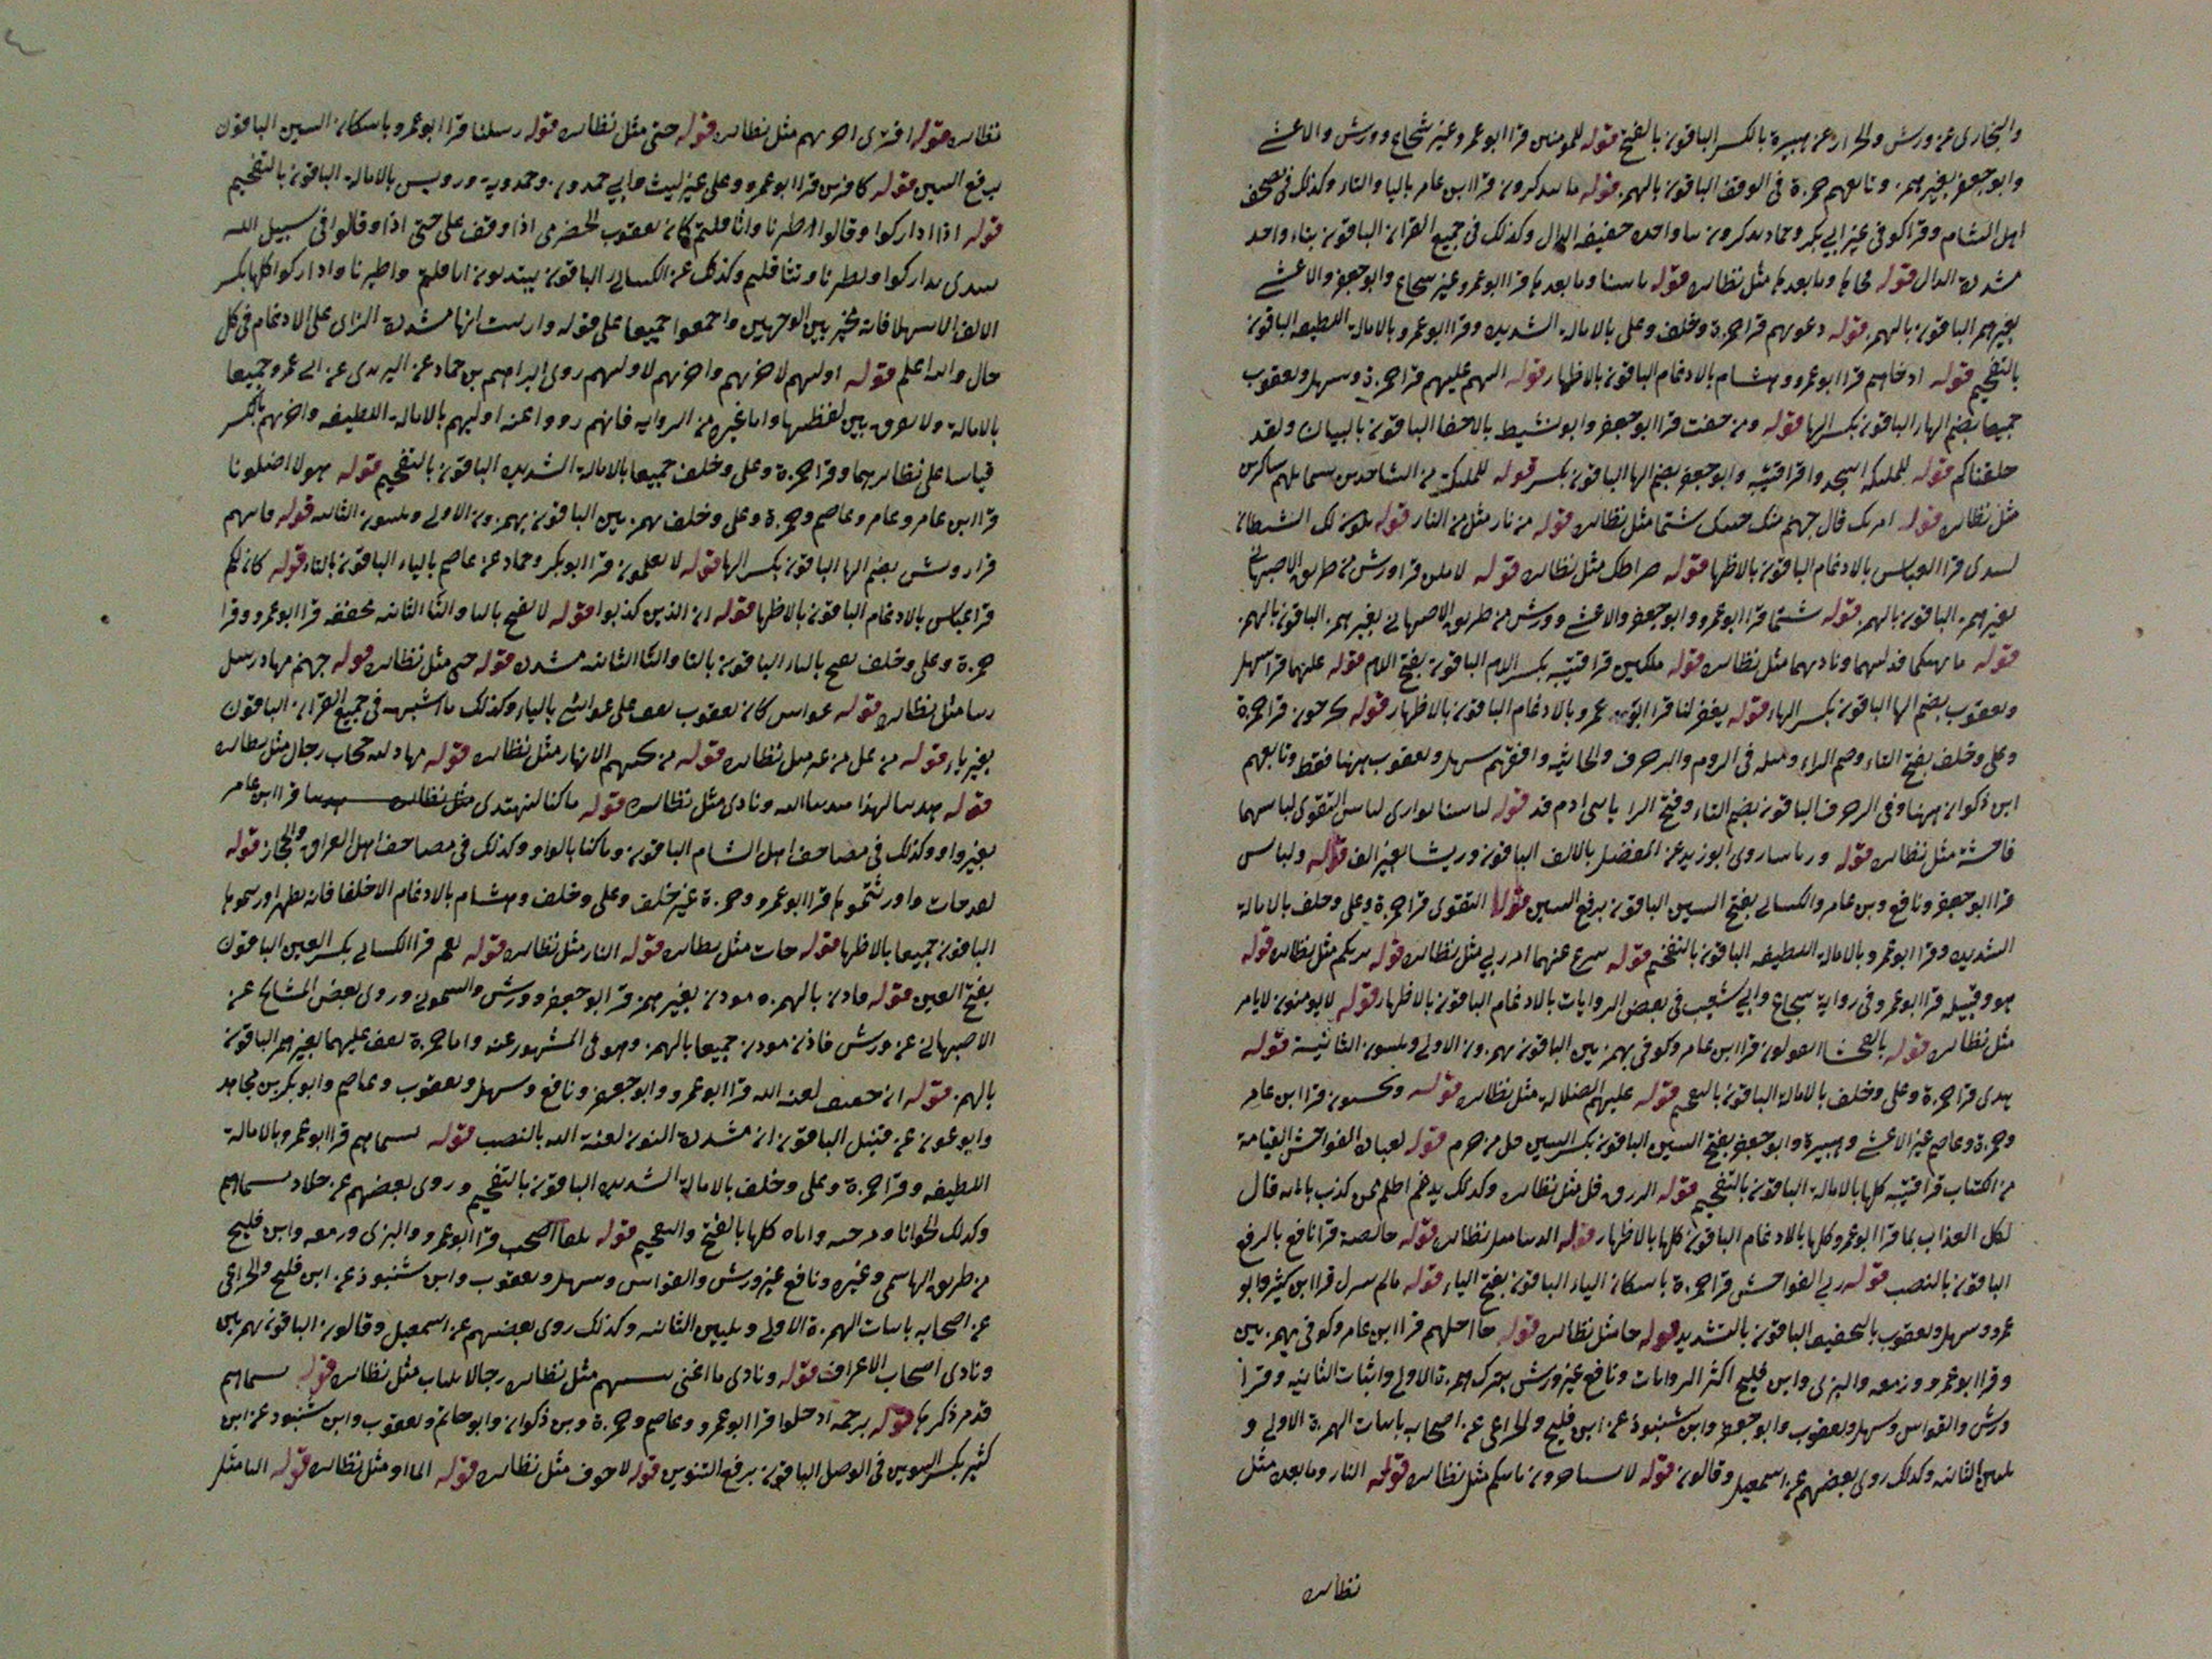 والبخارى عن ورش والخزاز عن هبيرة بالكسر الباقون بالفتح قوله للمومنين قرا ابو عمرو غير شجاع وورش والاعشى
وابو جعفر بغير همز وتابعهم حمزة فى الوقف الباقون بالهمز قوله ما يتذكرون قرا ابن عامر باليا والتاء وكذلك فى مصحف
اهل الشام وقرا كوفى غير ابى بكر وحماد تذكرون بتاء واحده خفيفه الذال وكذلك فى جميع القران الباقون بتاء واحد
مشددة الذال قوله فجاها وما بعدها مثل نظائره قوله باسنا وما بعدها قرا ابو عمرو غير شجاع وابو جعفر والاعشى
بغير همز الباقون بالهمز قوله دعويهم قرا حمزة وخلف وعلى بالامالة الشديده وقرا ابو عمرو بالامالة اللطيفه الباقون
بالتفخيم قوله اذ جاهم قرا ابو عمرو وهشام بالادغام الباقون بالاظهار قوله اليهم عليهم قرا حمزة وسهل ويعقوب
جميعا بضم الها الباقون بكسر الها قوله ومن خفت قرا ابو جعفر وابو نشيط بالاخفا الباقون بالبيان ولقد
خلقناكم قوله للملئكه اسجدوا قرا قتيبه وابو جعفر بضم الها الباقون بكسر قوله للملئكة من الساجدين
مثل نظائره قوله امرتك قال جهنم منك حيث شئتما مثل نظائره قوله من نار مثل من النار قوله يكون لك الشيطان
ليبدى قرا العباس بالادغام الباقون بالاظهار قوله صراطك مثل نظائره قوله لاملئن قرا ورش من طريق الاصبهانى
بغير همز الباقون بالهمز قوله شئتما قرا ابو عمرو وابو جعفر والاعشى وورش من طريق الاصبهانى بغير همز الباقون بالهمز
قوله ما نهيكما فدليهما وناديهما مثل نظائره قوله ملكين قرا قتيبه بكسر اللام الباقون بفتح اللام قوله عليهما قرا سهل
ويعقوب بضم الها الباقون بكسر الهاء قوله يغفر لنا قرا ابو عمرو بالادغام الباقون بالاظهار قوله تخرجون قرا حمزة
وعلى وخلف بفتح التاء وضم الراء ومثله فى الروم والزخرف والجاثيه وافقهم سهل ويعقوب ههنا فقط وتابعهم
ابن ذكوان ههنا وفى الزخرف الباقون بضم التاء وفتح الرا يابنى ادم قد قوله لباسا يوارى لباس التقوى لباسهما
فاحشة مثل نظائره قوله ورياشا روى ابو زيد عن المفضل بالالف الباقون وريشا بغير الف قوله ولباس
قرا ابو جعفر ونافع وبن عامر والكسائى بفتح السين الباقون برفع السين قوله التقوى قرا حمزة وعلى وخلف بالامالة
الشديده وقرا ابو عمرو بالامالة اللطيفه الباقون بالتفخيم قوله ينزع عنهما امر ربى مثل نظائره قوله يريكم مثل نظائره قوله
هو وقبيله قرا ابو عمرو فى رواية شجاع وابى شعيب فى بعض الروايات بالادغام الباقون بالاظهار قوله لا يومنون لا يامر
مثل نظائره قوله بالفحشا اتقولون قرا ابن عامر وكوفى بهمزتين الباقون بهمزون الاولى ويلينون الثانية قوله
هدى قرا حمزة وعلى وخلف بالامالة الباقون بالتفخيم قوله عليهم الضلالة مثل نظائره قوله ويحسبون قرا ابن عامر
وحمزة وعاصم غير الاعشى وهبيرة وابو جعفر بفتح السين الباقون بكسر السين قل من حرم قوله لعباده الفواحش القيامة
من الكتاب قرا قتيبه كلها بالامالة الباقون بالتفخيم قوله الرزق قل مثل نظائره وكذلك يدغم اظلم ممن كذب باياته قال
لكل العذاب بما قرا ابو عمرو كلها بالادغام الباقون كلها بالاظهار قوله الدنيا مثل نظائره قوله خالصة قرا نافع بالرفع
الباقون بالنصب قوله ربى الفواحش قرا حمزة باسكان الياء الباقون بفتح الياء قوله مالم ينزل قرا ابن كثير وابو
عمرو وسهل ويعقوب بالتخفيف الباقون بالتشديد قوله جا مثل نظائره قوله جا اجلهم قرا ابن عامر وكوفى بهمزتين
وقرا ابو عمرو وزمعه والبزى وابن فليح اكثر الروايات ونافع غير ورش بترك همزة الاولى واثبات الثانيه وقرا
ورش والقواس وسهل ويعقوب وابو جعفر وابن شنبوذ عن ابن فليح والخزاعى عن اصحابه باثبات الهمزة الاولى و
تليين الثانيه وكذلك روى بعضهم عن اسمعيل وقالون قوله لا يستاخرون ياتيكم مثل نظائره قوله النار وما بعده مثل
نظائره
نظائره قوله افترى اخريهم مثل نظائره قوله حتى مثل نظائره قوله رسلنا قرا ابو عمرو باسكان السين الباقون
برفع السين قوله كافرين قرا ابو عمرو وعلى غير ليث وابى حمدون وحمدويه ورويس بالامالة الباقون بالتفخيم
قوله اذا اداركوا وقالوا اطيرنا واثاقلتم كان يعقوب الحضرمى اذا وقف على حتى اذا وقالوا فى سبيل الله
يبتدى تداركوا وتطيرنا وتثاقلتم وكذلك عن الكسائى الباقون يبتدئون اثاقلتم واطيرنا واداركوا كلها بكسر
الالف الا سهلا فانه يخير بين الوجهين واجمعوا جميعا على قوله وازينت انها مشددة الزاى على الادغام فى كل
حال والله اعلم قوله اوليهم لاخريهم واخريهم لاوليهم روى ابراهيم بن حماد عن اليزيدى عن ابى عمرو جميعا
بالامالة ولا يفرق بين لفظيها واما غيره من الرواية فانهم رووا عنه اوليهم بالامالة اللطيفه واخريهم بالكسر
قياسا على نظائرهما وقرا حمزة وعلى وخلف جميعا بالامالة الشديده الباقون بالتفخيم قوله هولا اضلونا
قرا ابن عامر وعاصم وحمزة وعلى وخلف بهمزتين الباقون بهمزون الاولى ويلينون الثانيه قوله فاتهم
قرا رويس بضم الها الباقون بكسر الها قوله لا يعلمون قرا ابو بكر وحماد عن عاصم بالياء الباقون بالتاء قوله كان لكم
قرا عباس بالادغام الباقون بالاظهار قوله ان الذين كذبوا قوله لا تفتح بالتا والتا الثانيه مخففه قرا ابو عمرو وقرا
حمزة وعلى وخلف يفتح بالياء الباقون بالتا والتا الثانيه مشدده قوله حتى مثل نظائره قوله جهنم مهاد رسل
ربنا مثل نظائره قوله غواش كان يعقوب يقف على غواشى بالياء وكذلك ما اشبهه فى جميع القران الباقون
بغير ياء قوله من غل من غير مثل نظائره قوله من تحتهم الانهار مثل نظائره قوله مهاد حجاب رجال مثل نظائره
قوله هدينا لهذا هدينا الله ونادى مثل نظائره قوله ما كنا لنهتدى مثل نظائره قرا ابن عامر
بغير واو وكذلك فى مصاحف اهل الشام الباقون وما كنا بالواو وكذلك فى مصاحف اهل العراق والحجاز قوله
لقد جات واورثتموها قرا ابو عمرو وحمزة غير خلف وعلى وخلف وهشام بالادغام الا خلفا فانه يظهر اورثتموها
الباقون جميعا بالاظهار قوله جات مثل نظائره قوله النار مثل نظائره قوله نعم قرا الكسائى بكسر العين الباقون
بفتح العين قوله فاذن بالهمزه موذن بغير همز قرا ابو جعفر وورش والشمونى وروى بعض المشايخ عن
الاصبهانى عن ورش فاذن موذن جميعا بالهمز وهو فى المشهور عنه واما حمزة يقف عليهما بغير همز الباقون
بالهمز قوله ان خفيف لعنه الله قرا ابو عمرو وابو جعفر ونافع وسهل ويعقوب وعاصم وابو بكر بن مجاهد
وابو عون عن قنبل الباقون ان مشددة النون لعنة الله بالنصب قوله بسيماهم قرا ابو عمرو بالامالة
اللطيفه وقرا حمزة وعلى وخلف بالامالة الشديده الباقون بالتفخيم وروى بعضهم عن خلاد بسيماهم
وكذلك الحوايا ومزجيه واناه كلها بالفتح والتفخيم قوله تلقا اصحب قرا ابو عمرو والبزى وزمعه وابن فليح
من طريق الهاشمى وغيره ونافع غير ورش والقواس وسهل ويعقوب وابن شنبوذ عن ابن فليح والخزاعى
عن اصحابه باثبات الهمزة الاولى وتليين الثانيه وكذلك روى بعضهم عن اسمعيل وقالون الباقون بهمزتين
ونادى اصحاب الاعراف قوله ونادى ما اغنى ننسيهم مثل نظائره رجالا مثل نظائره قوله بسيماهم
قد مر ذكرها قوله برحمة ادخلوا قرا ابو عمرو وعاصم وحمزة وبن ذكوان وابو حاتم ويعقوب وابن شنبوذ عن ابن
كثير بكسر التنوين فى الوصل الباقون برفع التنوين قوله لا خوف مثل نظائره قوله الما او مثل نظائره قوله الدنيا مثل